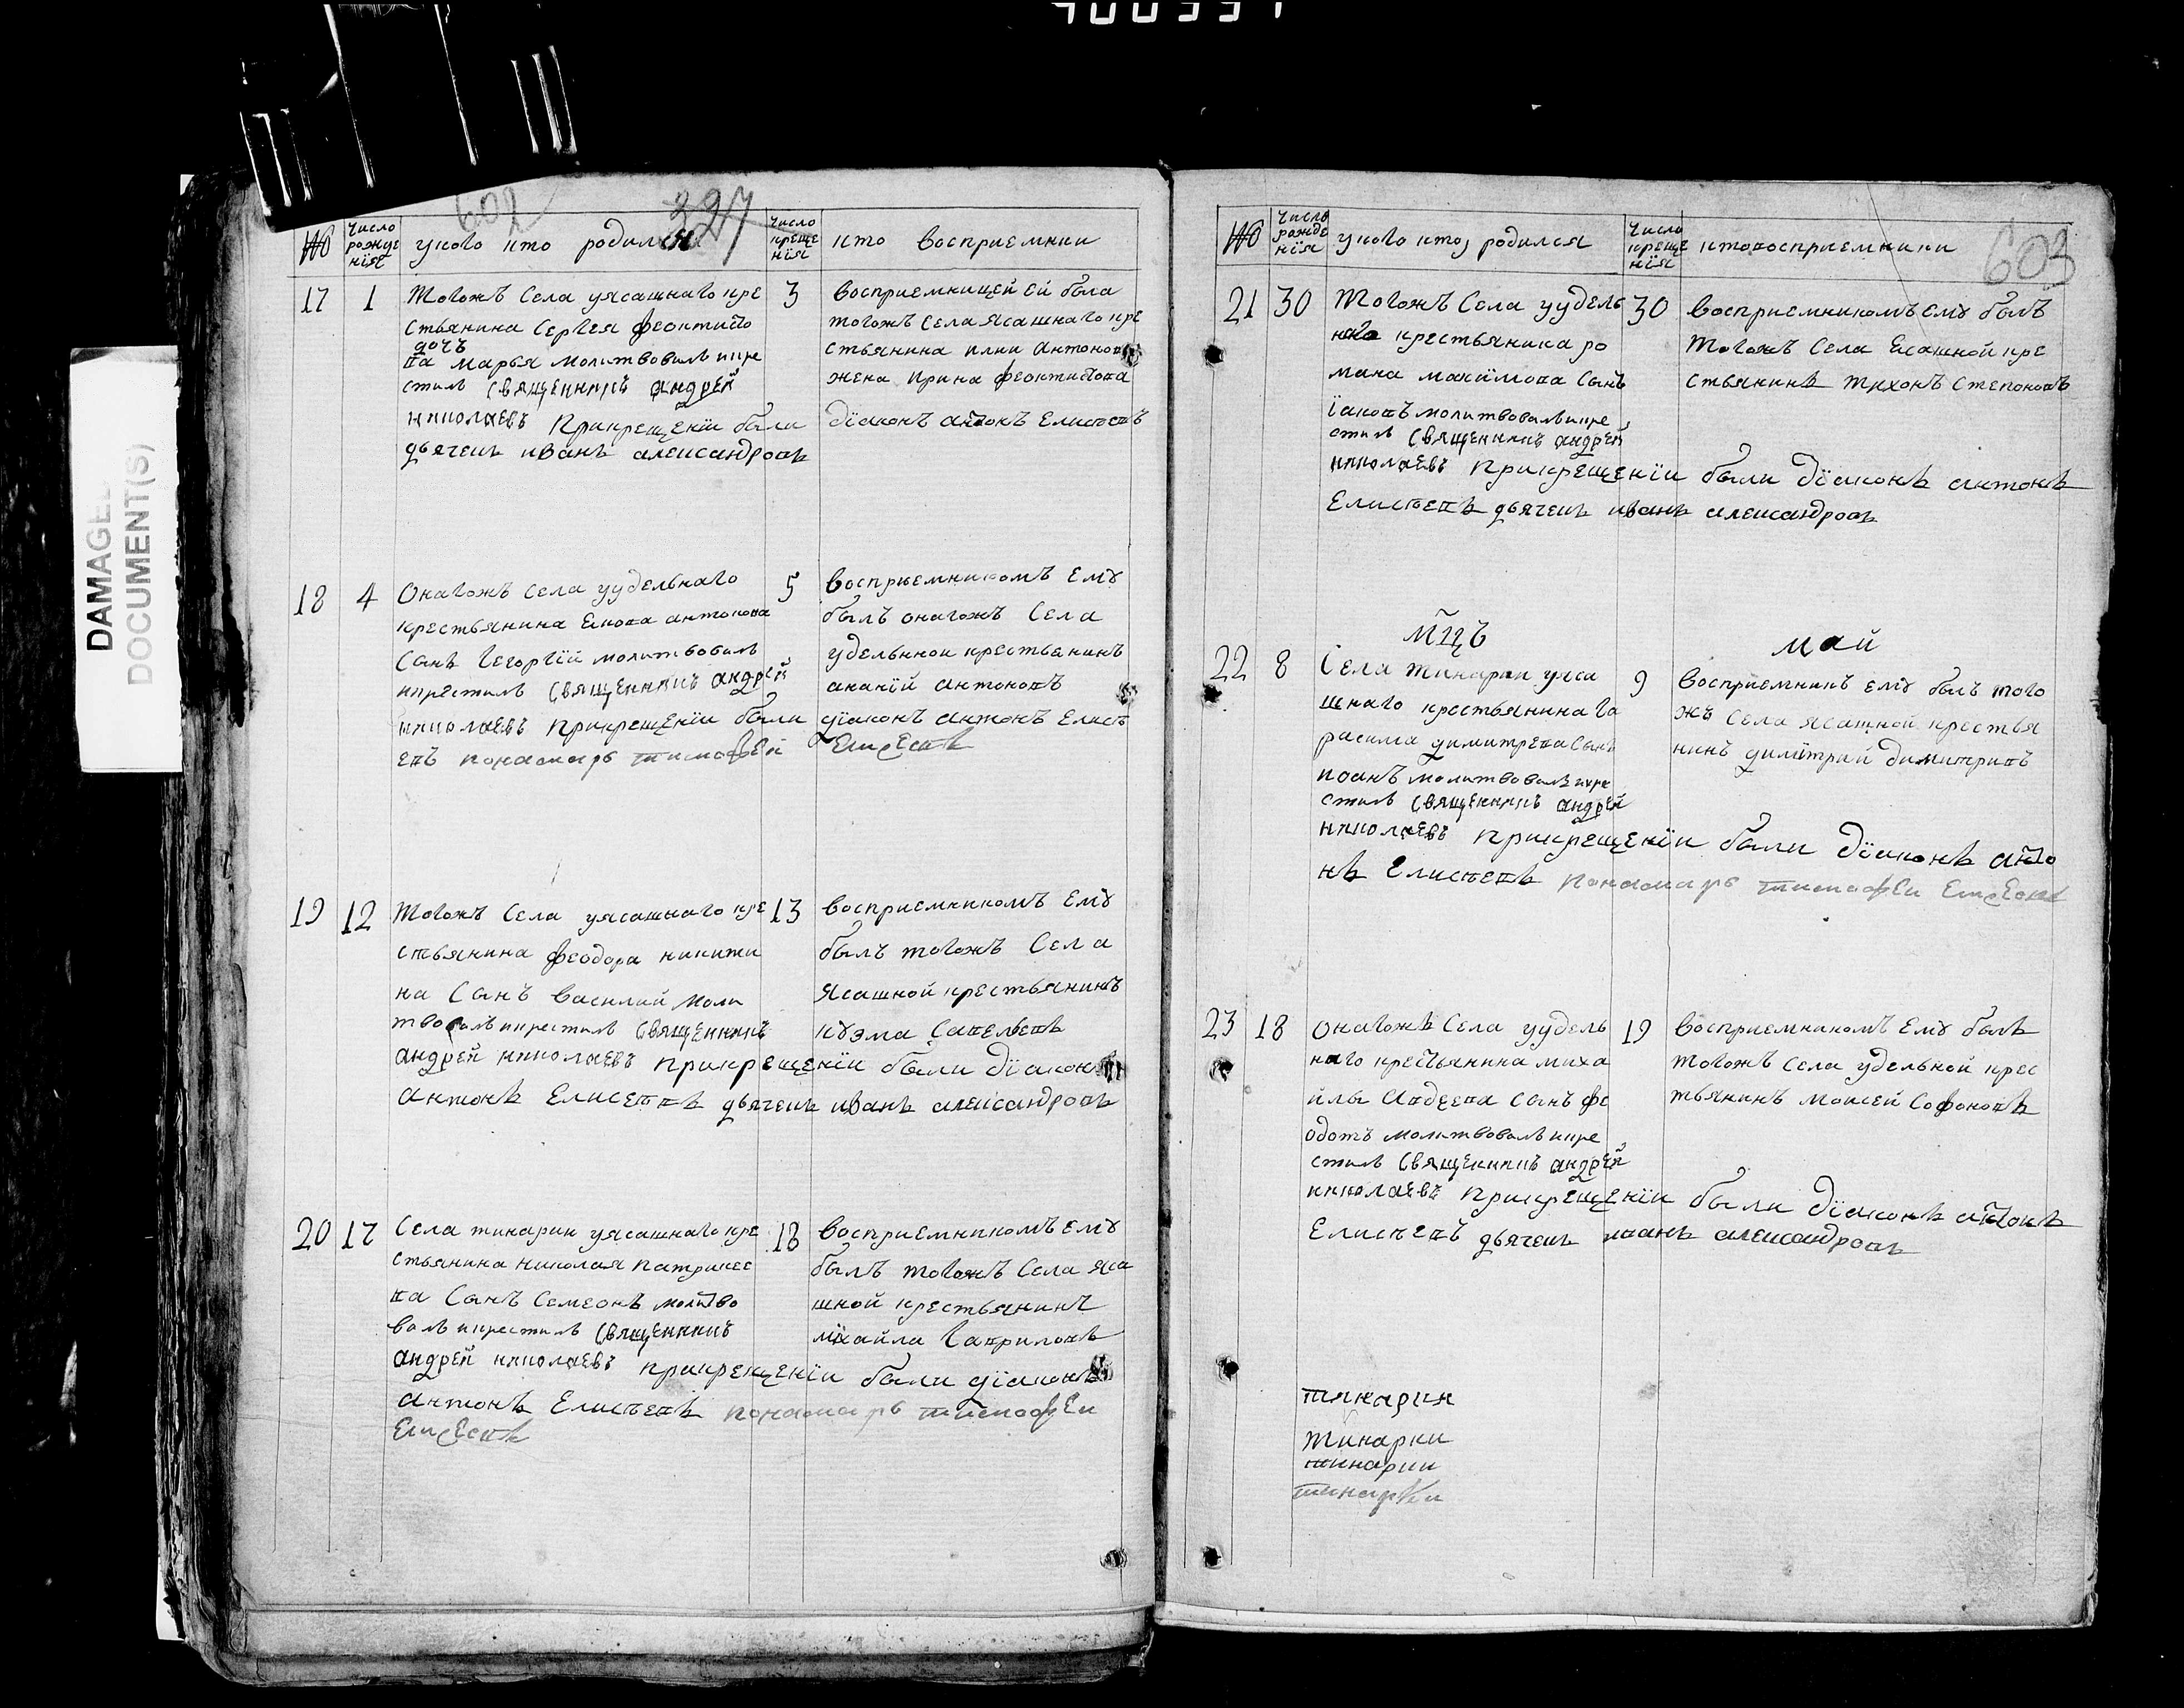 DAMAGED
DOCUMENT(S)
602
327
№
число рожде нїя
укого кто родился
число креще нїя
кто восприемники
17 1
тогожъ Села уясашнаго кре
стьянина Сергея феоктисто
дочь
ва марья молитвовалъ икре
стилъ Священникъ андрей
николаевъ прикрещенїи были
дьячекъ иванъ александровъ
3
восприемницей ей была
тогожъ Села ясашнаго кре
стьянина илии антонов
жена ирина феоктистова
дїаконъ антонъ Елисеевъ
18 4
Онагожъ Села уудельнаго
крестьянина Якова антонова
Сынъ георгїй молитвовалъ
икрестилъ Священникъ андрей
николаевъ прикрещенїи были
евъ понамарь тимофей
5
восприемникомъ ему
былъ онагожъ Села
удельнои крестьянинъ
ананїй антоновъ
дїаконъ антонъ Елисѣ
19 12
тогожъ Села уясашнаго кре
стьянина феодора никити
на Сынъ василий моли
твовалъ икрестилъ Священникъ
андрей николаевъ прикрещенїи были дїаконъ
антонъ Елисеевъ дьячекъ иванъ александровъ
13
восприемникомъ ему
былъ тогожъ Села
ясашной крестьянинъ
кузма Савельевъ
20 17
Села тинарки уясашнаго кре
стьянина николая патрикее
ва Сынъ Семеонъ молитво
валъ икрестилъ Священникъ
андрей николаевъ прикрещенїи были дїаконъ
антонъ Елисѣевъ понамарь тимофеи
18
восприемникомъ ему
былъ тогожъ Села яса
шной крестьянинъ
михайла гавриловъ
603
№
число рожде нїя
укого кто родился
число креще нїя
ктовосприемники
21 30
тогожъ Села уудель
наго крестьянина ро
мана макимова Сынъ
їаковъ молитвовалъ икре
стилъ Священникъ андрей
николаевъ прикрещенїи были дїаконъ антонъ
Елисѣевъ дьячекъ иванъ александровъ
30
восприемникомъ ему былъ
тогожъ Села Ясашной кре
стьянинъ тихонъ степоновъ
мцъ май
22 8
Села тинарки уяса
шнаго крестьянина га
расима димитрева Сынъ
иоанъ молитвовалъ икре
стилъ Священникъ андрей
николаевъ прикрещенїи были дїаконъ анто
нъ Елисѣевъ понамарь тимофеи
9
восприемникъ ему былъ того
жъ Села ясашной крестья
нинъ димитрий димитривъ
23 18
онагожъ Села уудель
наго крестьянина миха
йлы Авдеева Сынъ фе
одотъ молитвовалъ икре
стилъ Священникъ андрей
николаевъ прикрещенїи были дїаконъ антонъ
Елисѣевъ дьячекъ иванъ александровъ
19
восприемникомъ ему былъ
тогожъ Села удельной крес
тьянинъ моисей Софоновъ
тинарки
тинарки
тинарки
тинарки